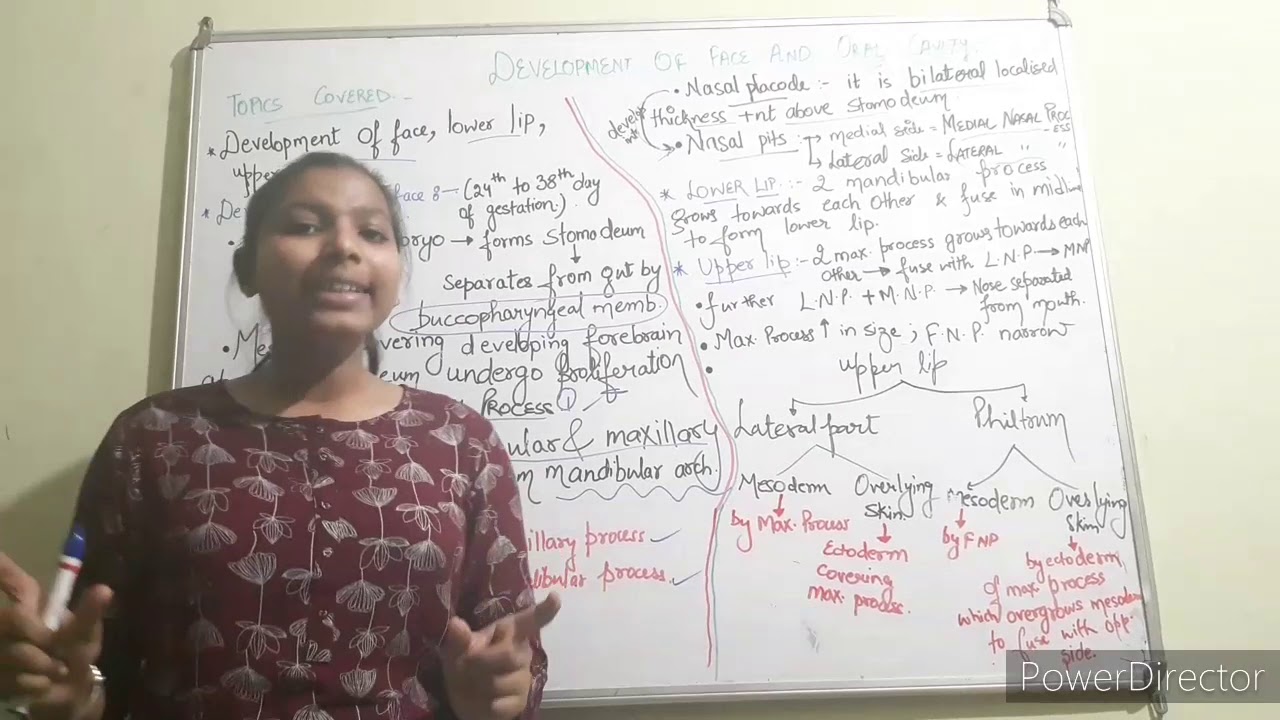 DEVELOPMENT OF FACE AND ORAL CAVITY.
TOPICS COVERED :-
* Development of face, lower lip,
upper
* De face 8 — (24th to 38th day
of gestation.)
ryo → forms stomodeum
↓
Separates from gut by
buccopharyngeal memb.
• Me vering developing forebrain
eum undergo proliferation
PROCESS
ular & maxillary
m mandibular arch.
illary process ✓
ibular process. ✓
• Nasal placode :- it is bilateral localised
thickness +nt above stomodeum
develop into
• Nasal pits :→ medial side = MEDIAL NASAL PROC
-ESS
↳ Lateral Side = LATERAL " "
* LOWER LIP :- 2 mandibular process
grows towards each other & fuse in midl
to form lower lip.
* Upper lip :- 2 max. process grows towards each
other → fuse with L.N.P. → MNP
• further L.N.P. + M.N.P. → Nose separated
from mouth.
• Max. Process ↑ in size ; F.N.P. narrow
•
upper lip
Lateral part Philtrum
Mesoderm Overlying Skin Mesoderm Overlying Skin
↓ ↓ ↓ ↓
by Max. Process by FNP
Ectoderm
covering
max. process.
by ectoderm
of max. process
which overgrows mesoderm
to fuse with opp.
side.
PowerDirector